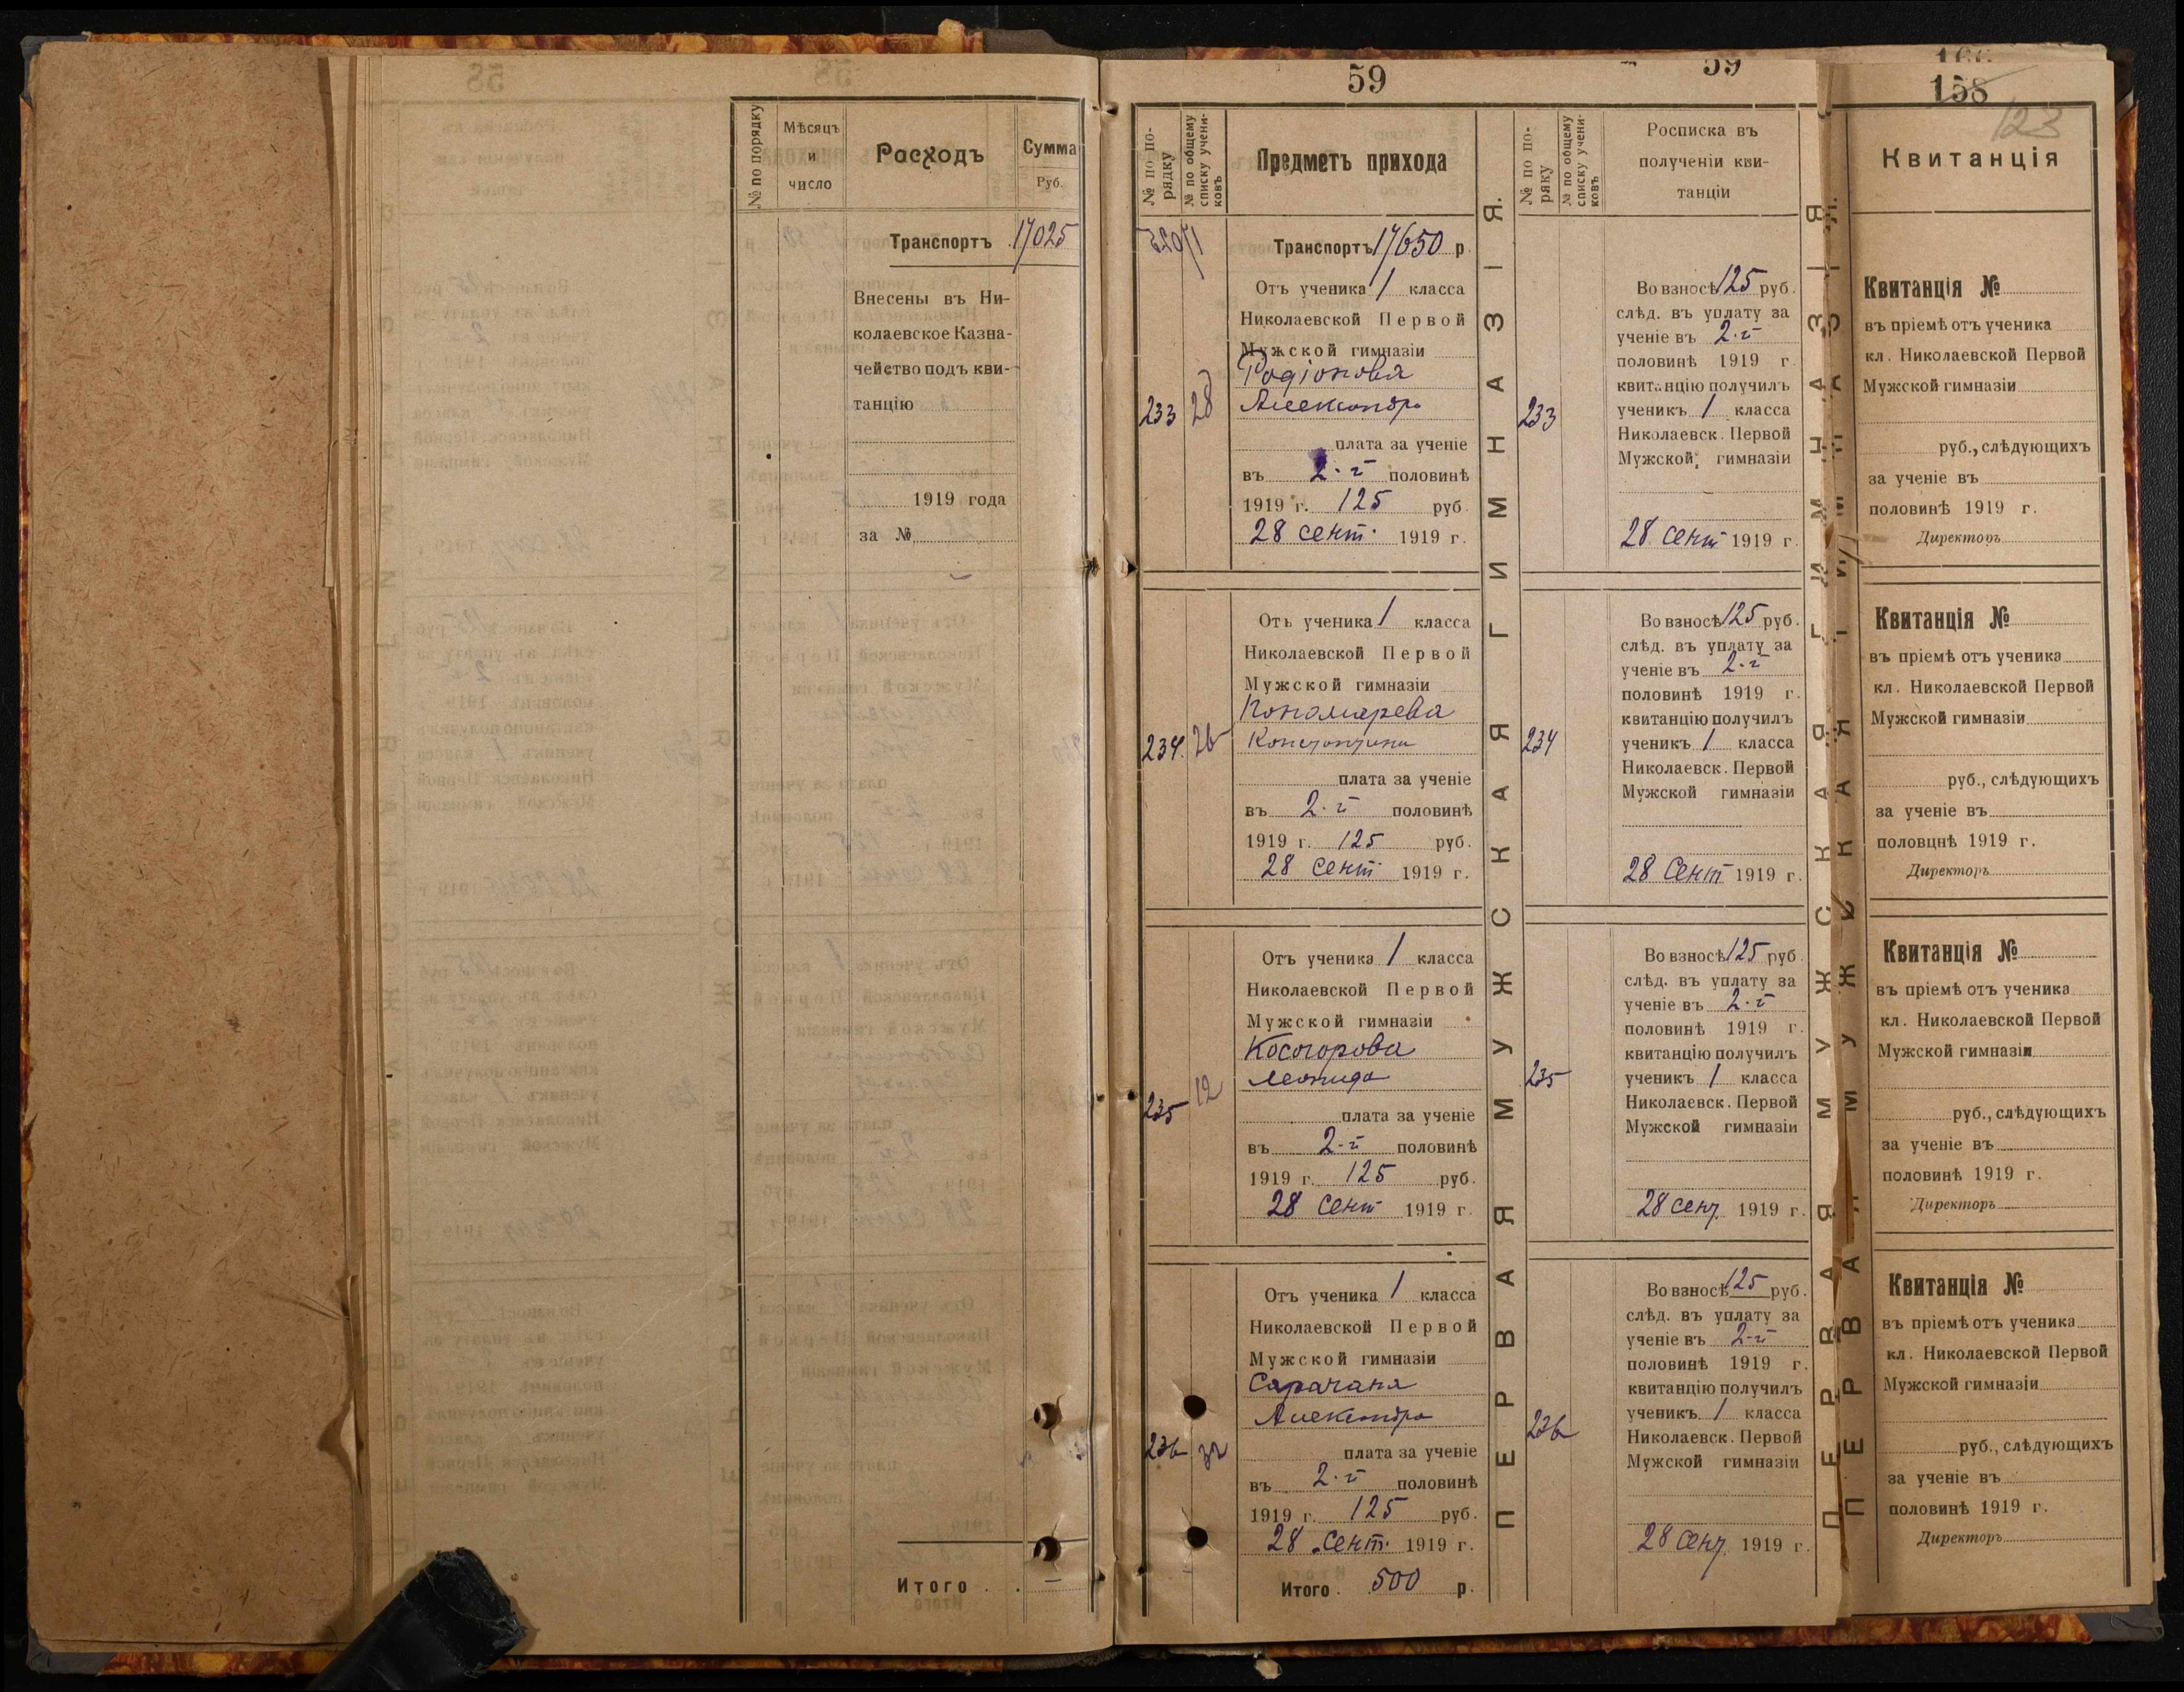 № по порядку
Мѣсяцъ
и
число
Расходъ
Сумма
Руб.
Транспортъ 17025
Внесены въ Ни-
колаевское Казна-
чейство подъ кви-
танцію
1919 года
за №
Итого . . —
59
№ по по-
рядку
№ по общему
списку учени-
ковъ
Предметъ прихода
Транспортъ 17650 р.
233
28
Отъ ученика 1 класса
Николаевской Первой
Мужской гимназіи
Родіонова
Александра
плата за ученіе
въ 2-й половинѣ
1919 г. 125 руб.
28 сент. 1919 г.
234.
26
Отъ ученика 1 класса
Николаевской Первой
Мужской гимназіи
Пономарева
Константина
плата за ученіе
въ 2-й половинѣ
1919 г. 125 руб.
28 сент 1919 г.
235
12
Отъ ученика 1 класса
Николаевской Первой
Мужской гимназіи
Косогорова
Леонида
плата за ученіе
въ 2-й половинѣ
1919 г. 125 руб.
28 сент 1919 г.
236
32
Отъ ученика 1 класса
Николаевской Первой
Мужской гимназіи
Сарачана
Александра
плата за ученіе
въ 2-й половинѣ
1919 г. 125 руб.
28 сент. 1919 г.
Итого . 500 р.
ПЕРВАЯ МУЖСКАЯ ГИМНАЗІЯ.
59
№ по по-
ряку
№ по общему
списку учени-
ковъ
Росписка въ
полученіи кви-
танціи
233
Во взносѣ 125 руб.
слѣд. въ уплату за
ученіе въ 2-й
половинѣ 1919 г.
квитанцію получилъ
ученикъ 1 класса
Николаевск. Первой
Мужской гимназіи
28 сент 1919 г.
234
Во взносѣ 125 руб.
слѣд. въ уплату за
ученіе въ 2-й
половинѣ 1919 г.
квитанцію получилъ
ученикъ 1 класса
Николаевск. Первой
Мужской гимназіи
28 Сент 1919 г.
235
Во взносѣ 125 руб.
слѣд. въ уплату за
ученіе въ 2-й
половинѣ 1919 г.
квитанцію получилъ
ученикъ 1 класса
Николаевск. Первой
Мужской гимназіи
28 сент 1919 г.
236
Во взносѣ 125 руб.
слѣд. въ уплату за
ученіе въ 2-й
половинѣ 1919 г.
квитанцію получилъ
ученикъ 1 класса
Николаевск. Первой
Мужской гимназіи
28 сент 1919 г.
ПЕРВАЯ МУЖСКАЯ ГИМНАЗІЯ
158
123
Квитанція
Квитанція №
въ пріемѣ отъ ученика
кл. Николаевской Первой
Мужской гимназіи
руб., слѣдующихъ
за ученіе въ
половинѣ 1919 г.
Директоръ
Квитанція №
въ пріемѣ отъ ученика
кл. Николаевской Первой
Мужской гимназіи
руб., слѣдующихъ
за ученіе въ
половцнѣ 1919 г.
Директоръ
Квитанція №
въ пріемѣ отъ ученика
кл. Николаевской Первой
Мужской гимназіи
руб., слѣдующихъ
за ученіе въ
половинѣ 1919 г.
Директоръ
Квитанція №
въ пріемѣ отъ ученика
кл. Николаевской Первой
Мужской гимназіи
руб., слѣдующихъ
за ученіе въ
половинѣ 1919 г.
Директоръ